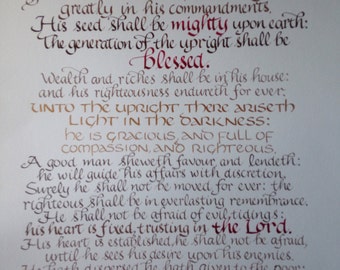 greatly in his commandments.
His seed shall be mighty upon earth:
The generation of the upright shall be
Blessed.
Wealth and riches shall be in his house:
and his righteousness endureth for ever.
Unto the upright there ariseth
light in the darkness:
he is gracious, and full of
compassion, and righteous.
A good man sheweth favour, and lendeth:
he will guide his affairs with discretion.
Surely he shall not be moved for ever: the
righteous shall be in everlasting remembrance.
He shall not be afraid of evil tidings:
his heart is fixed, trusting in the Lord.
His heart is established, he shall not be afraid,
until he sees his desire upon his enemies.
He hath dispersed, he hath given to the poor: